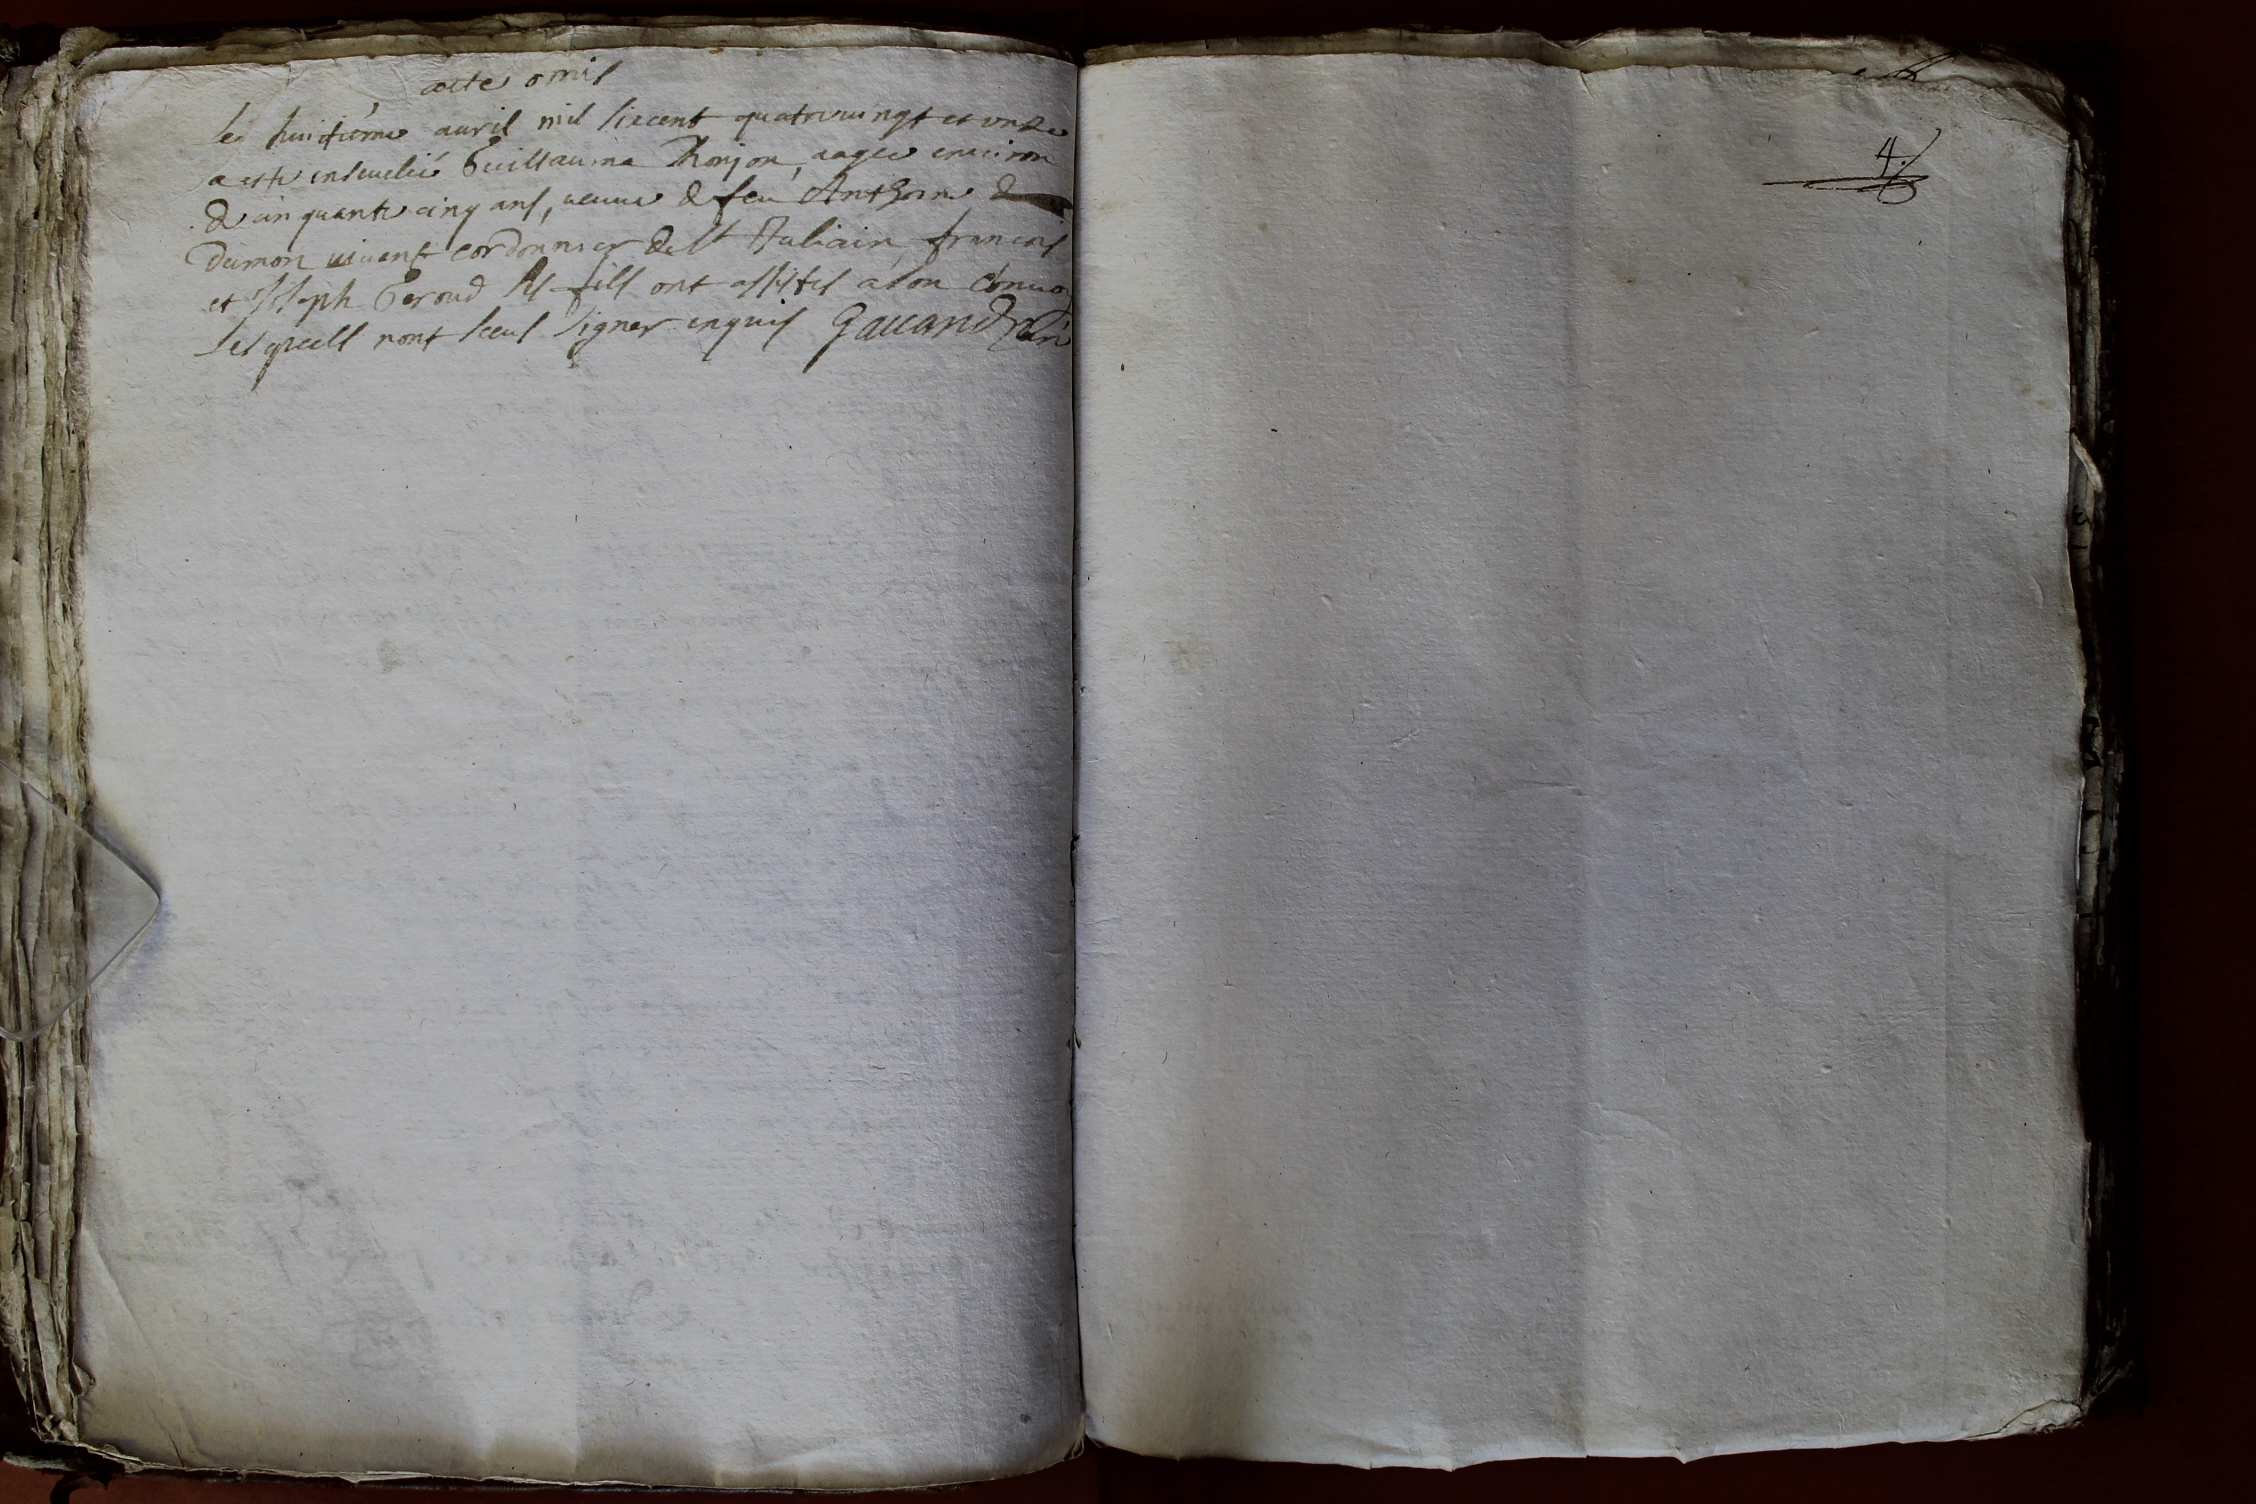 acte omis
le huictieme auril mil sixcent quatreuingt et onze
a esté enseuelie Guillauma Thonjon, aagee enuiron
de cinquante cinq ans, ueuue de feu Anthoine
Dumon uiuant cordonnier de St Juliain, francois
et Joseph Geroud ses fils ont assistes a son conuoy
lesquels nont sceus signer enquis Gauand curé
4.